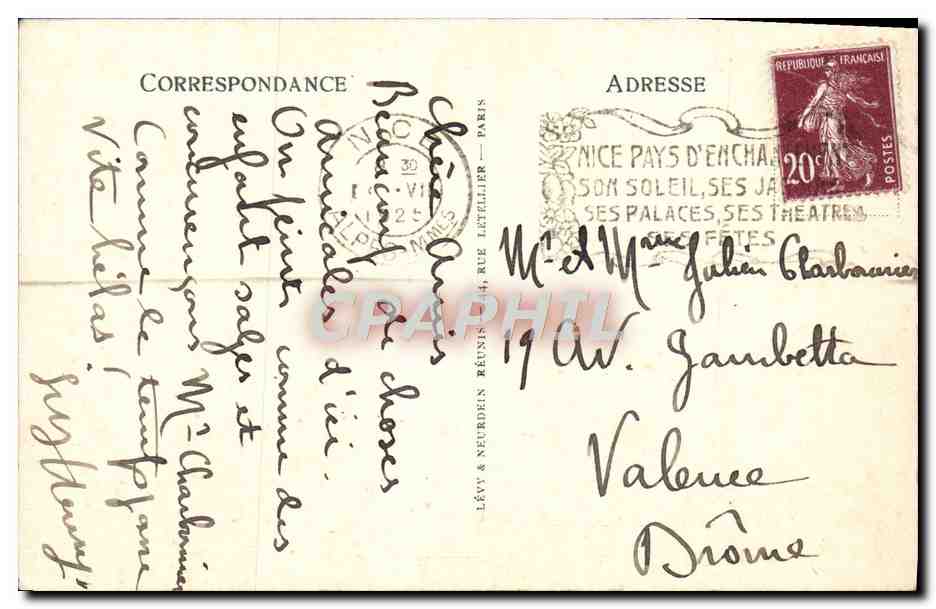 CORRESPONDANCE
ADRESSE
Chers Amis
Beaucoup de choses
amicales d'ici.
On feint comme des
enfants sages et
Mr Charbonnier
Comme le temps fane
Vite hélas!
NICE
30
1925
ALPES-MMES
NICE PAYS D'ENCHAN
SON SOLEIL, SES JA
SES PALACES, SES THEATRES
SES FÊTES
REPUBLIQUE FRANÇAISE
20c
POSTES
LÉVY & NEURDEIN RÉUNIS 44, RUE LETELLIER — PARIS
Mr et Mme Julien Charbonnier
19 Av. Gambetta
Valence
Drôme
CPAPHIL